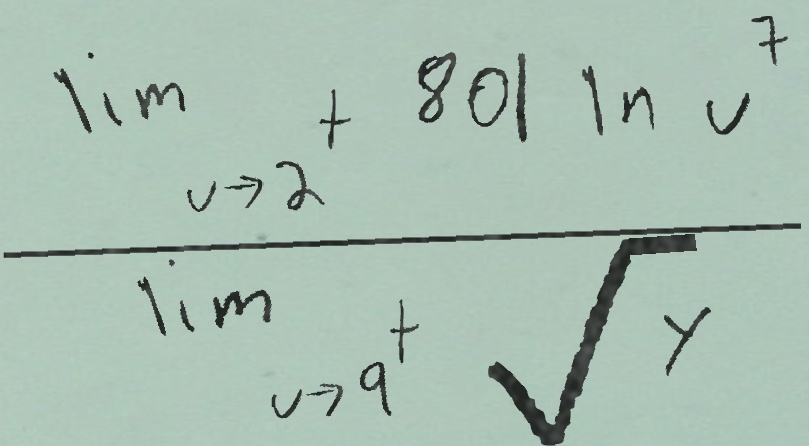 \frac{\lim_{v \to 2^+} 801 \ln v^7}{\lim_{v \to 9^+} \sqrt{y}}